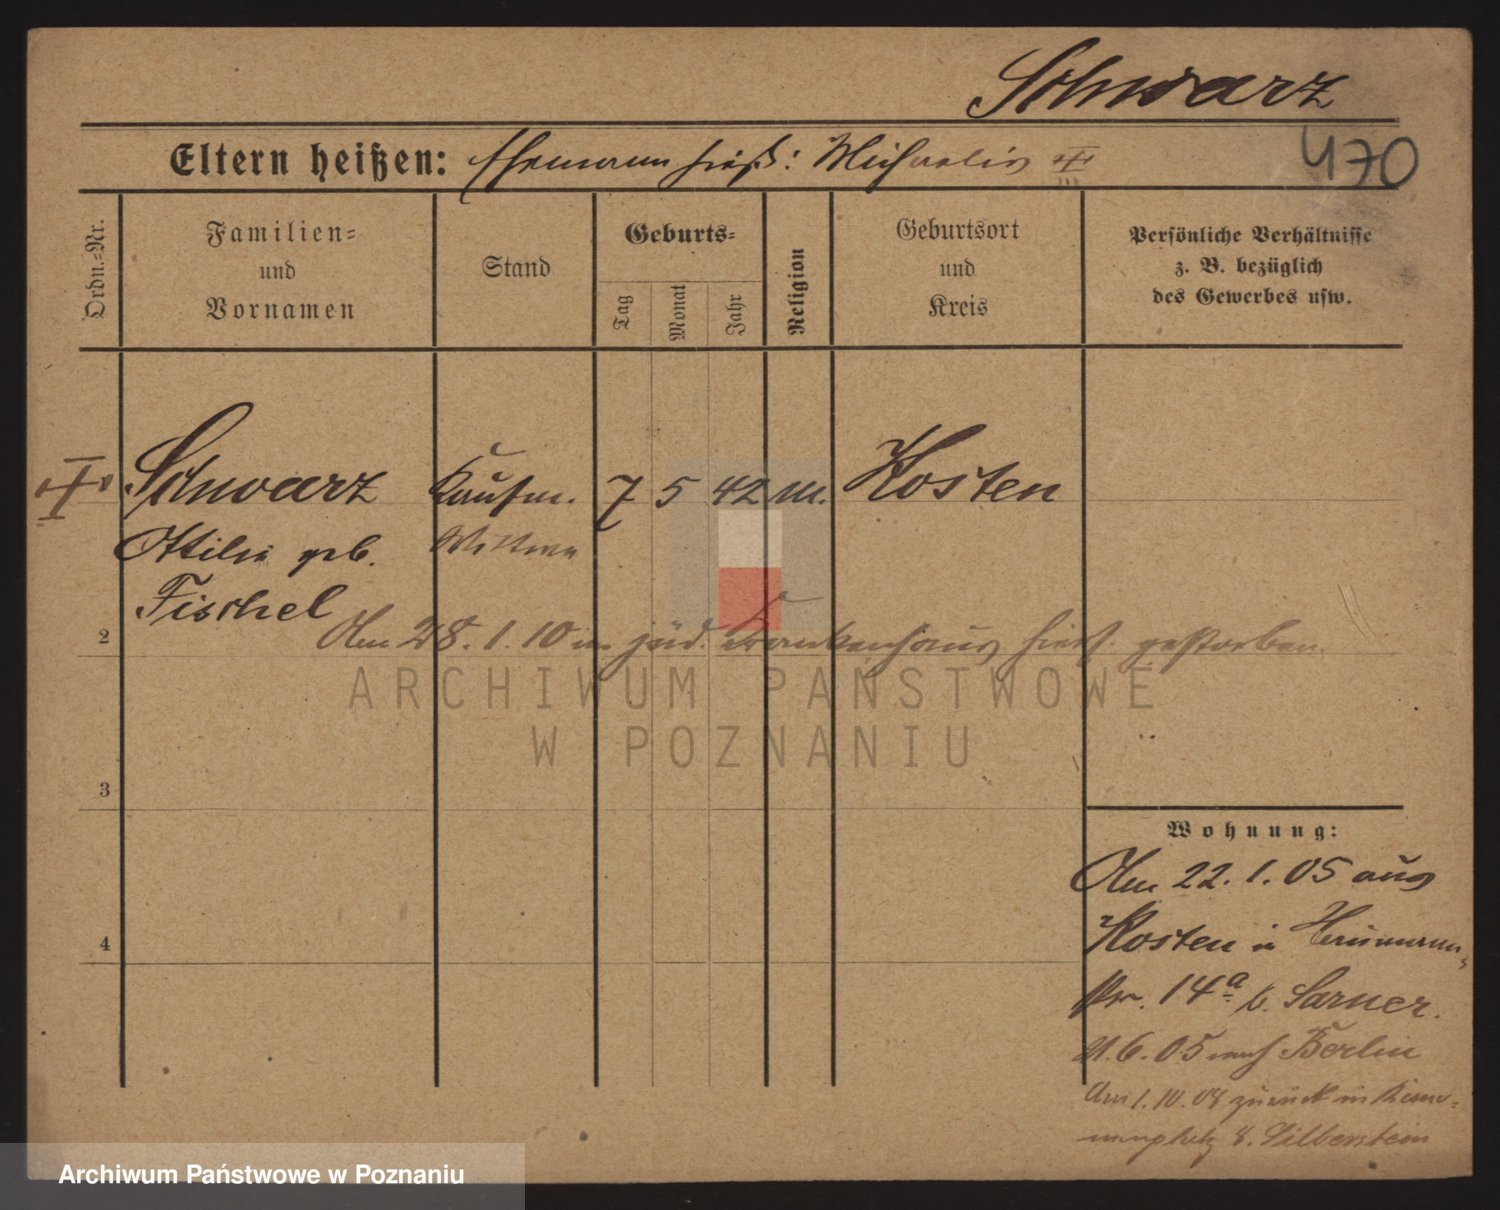 Schwarz
Eltern heißen: Ehemann hieß: Michaelis
470
Ordn.-Nr.
Familien- und Vornamen
Stand
Geburts-
Tag
Monat
Jahr
Religion
Geburtsort und Kreis
Persönliche Verhältnisse z. B. bezüglich des Gewerbes usw.
Schwarz Kaufm. 7 5 42 m. Kosten
Ottilie geb. Wittwe
Fischel
2
Am 28.1.10 im jüd. Krankenhaus hies. gestorben.
ARCHIWUM PAŃSTWOWE
W POZNANIU
3
Wohnung:
Am 22.1.05 aus
4
Kosten in Naumann-
str. 14a b. Sarner.
21.6.05 nach Berlin
Am 1.10.08 zurück in
b. Silberstein
Archiwum Państwowe w Poznaniu